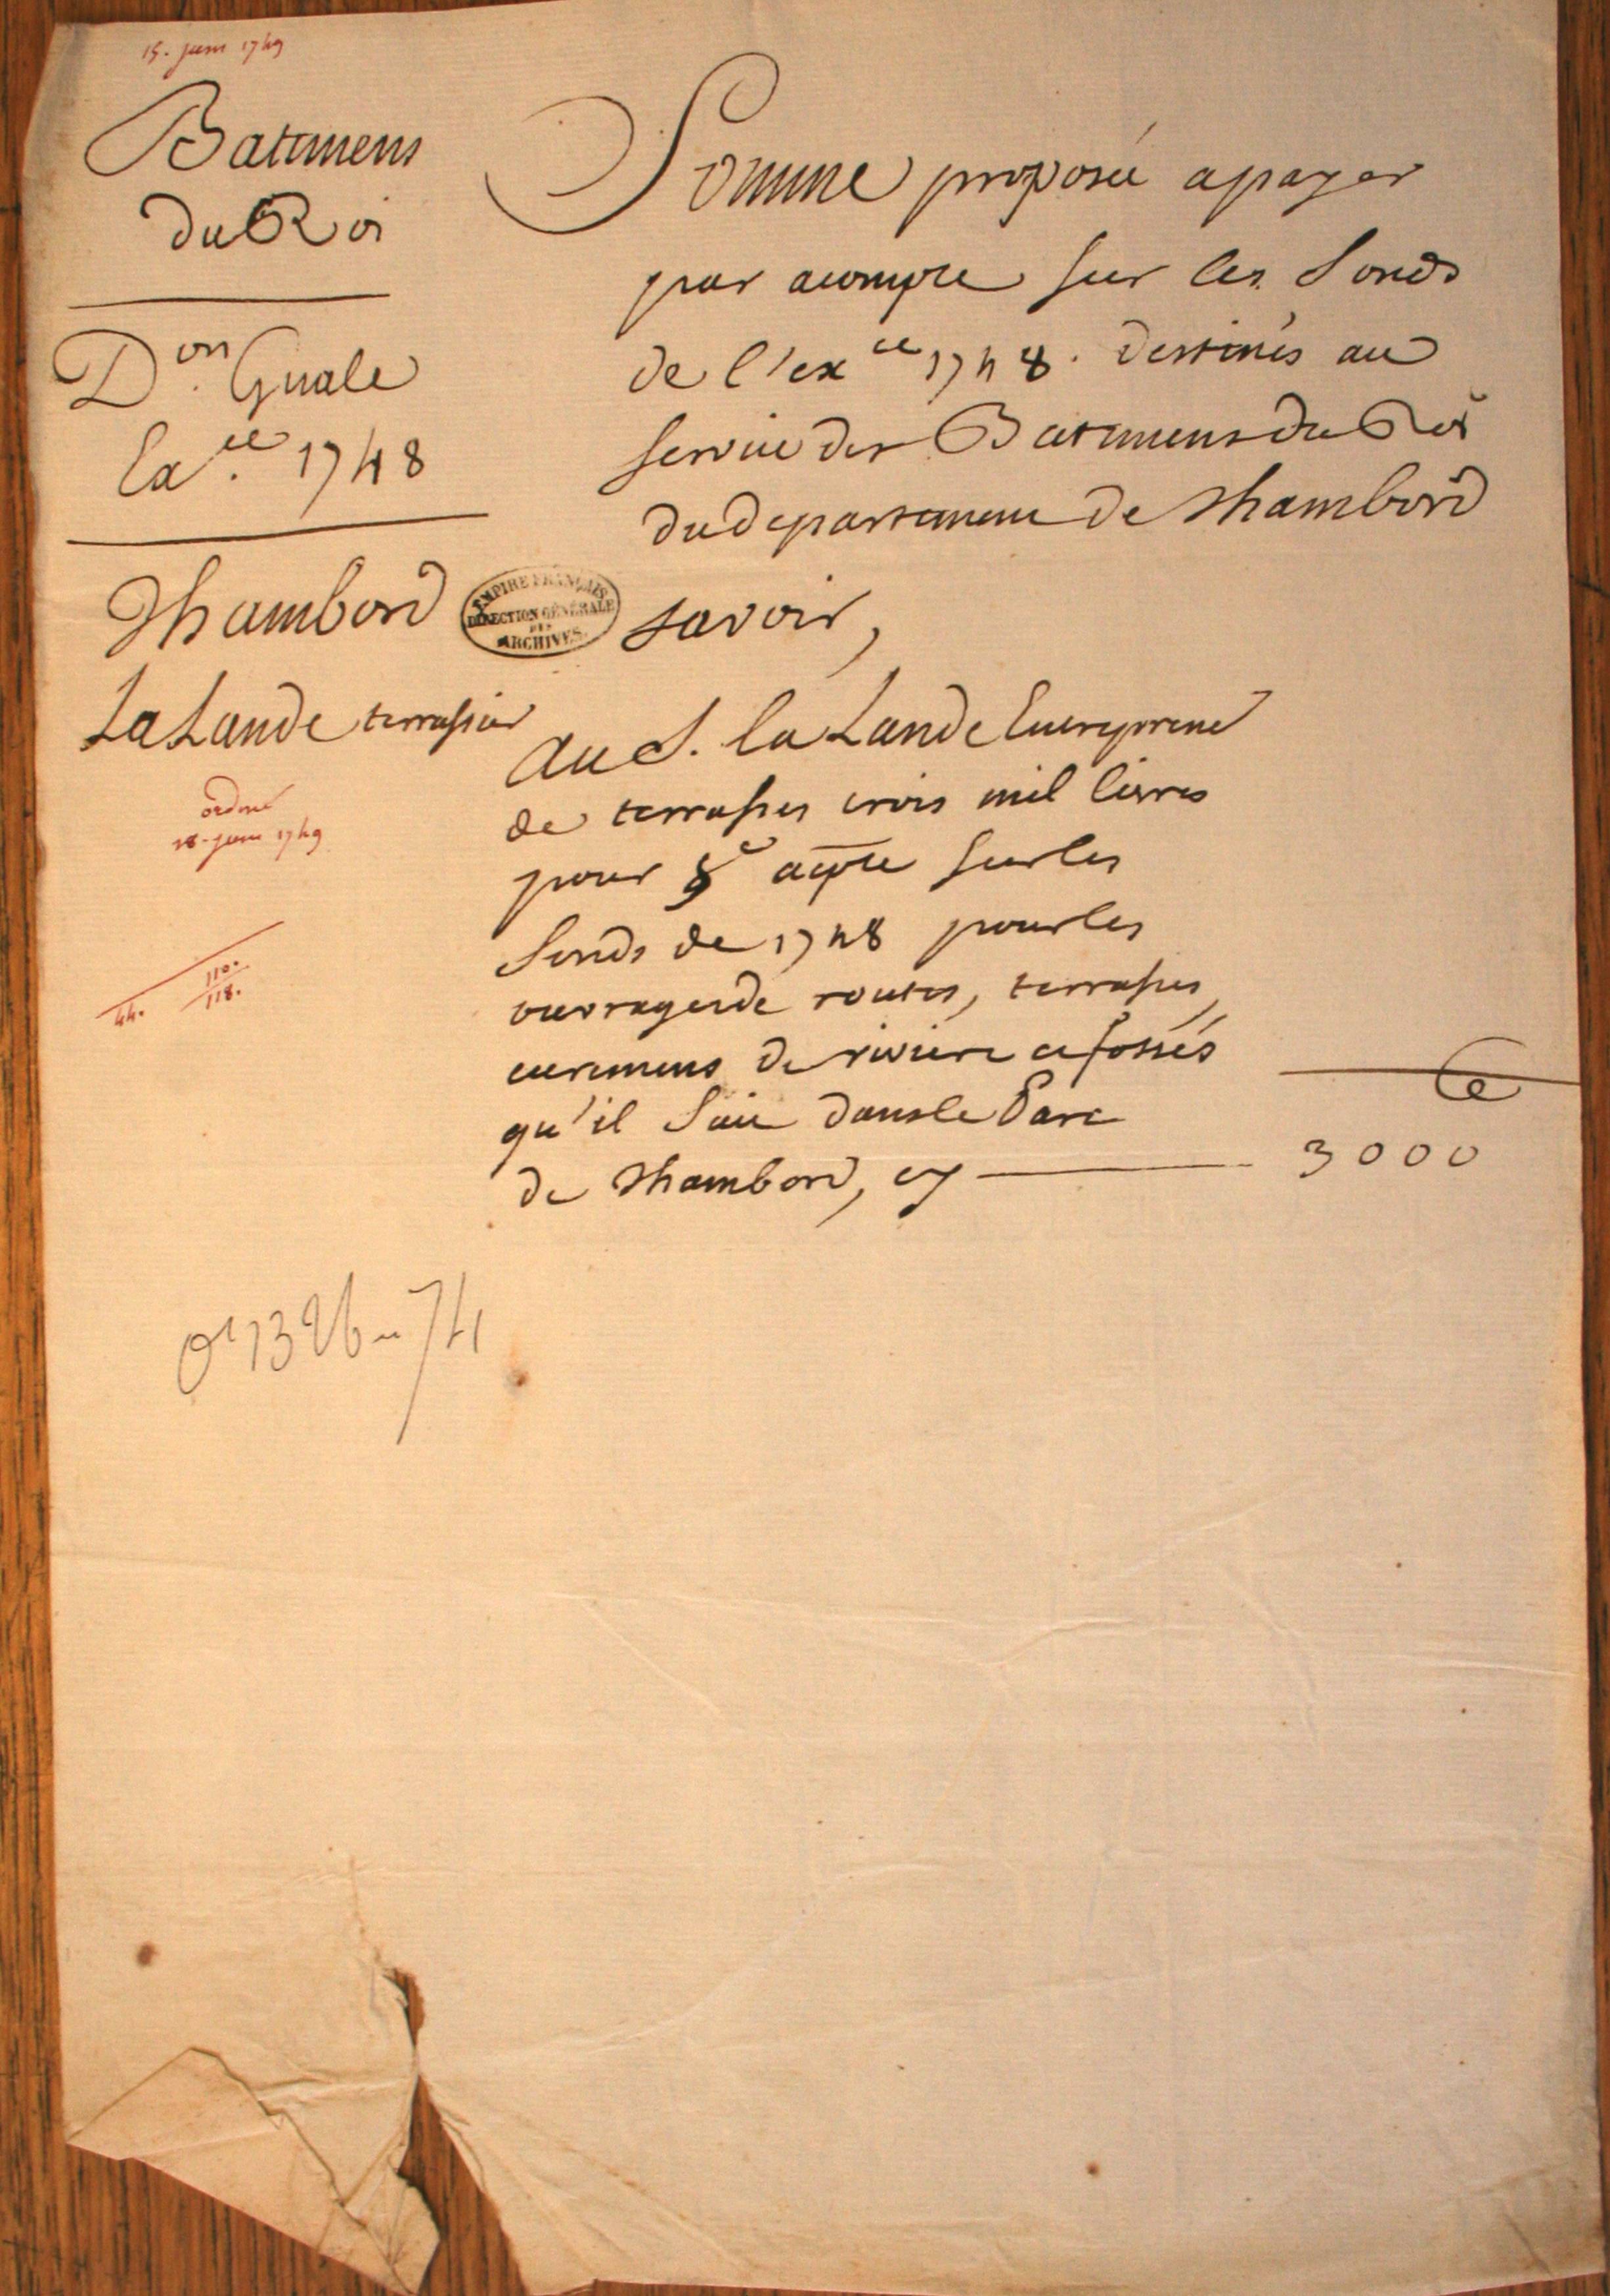 15. juin 1749
Batimens
du Roi
Don. Gnale
Exce. 1748
Chambord
La Lande terrassier
ordné
18. juin 1749
110.
44. 118.
Somme proposée a payer
par acompte sur les fonds
de l'exce 1748. destinés au
service des Batimens du Roi
du departement de Chambord
EMPIRE FRANÇAIS
DIRECTION GÉNÉRALE
DES
ARCHIVES.
savoir,
Au S. la Lande Entrepreneur
de terrasses trois mil livres
pour acpte sur les
fonds de 1748 pour les
ouvrages de routes, terrasses,
curemens de riviere et fossés
qu'il fait dans le Parc
de Chambord, cy 3000
O1 1326 - 74